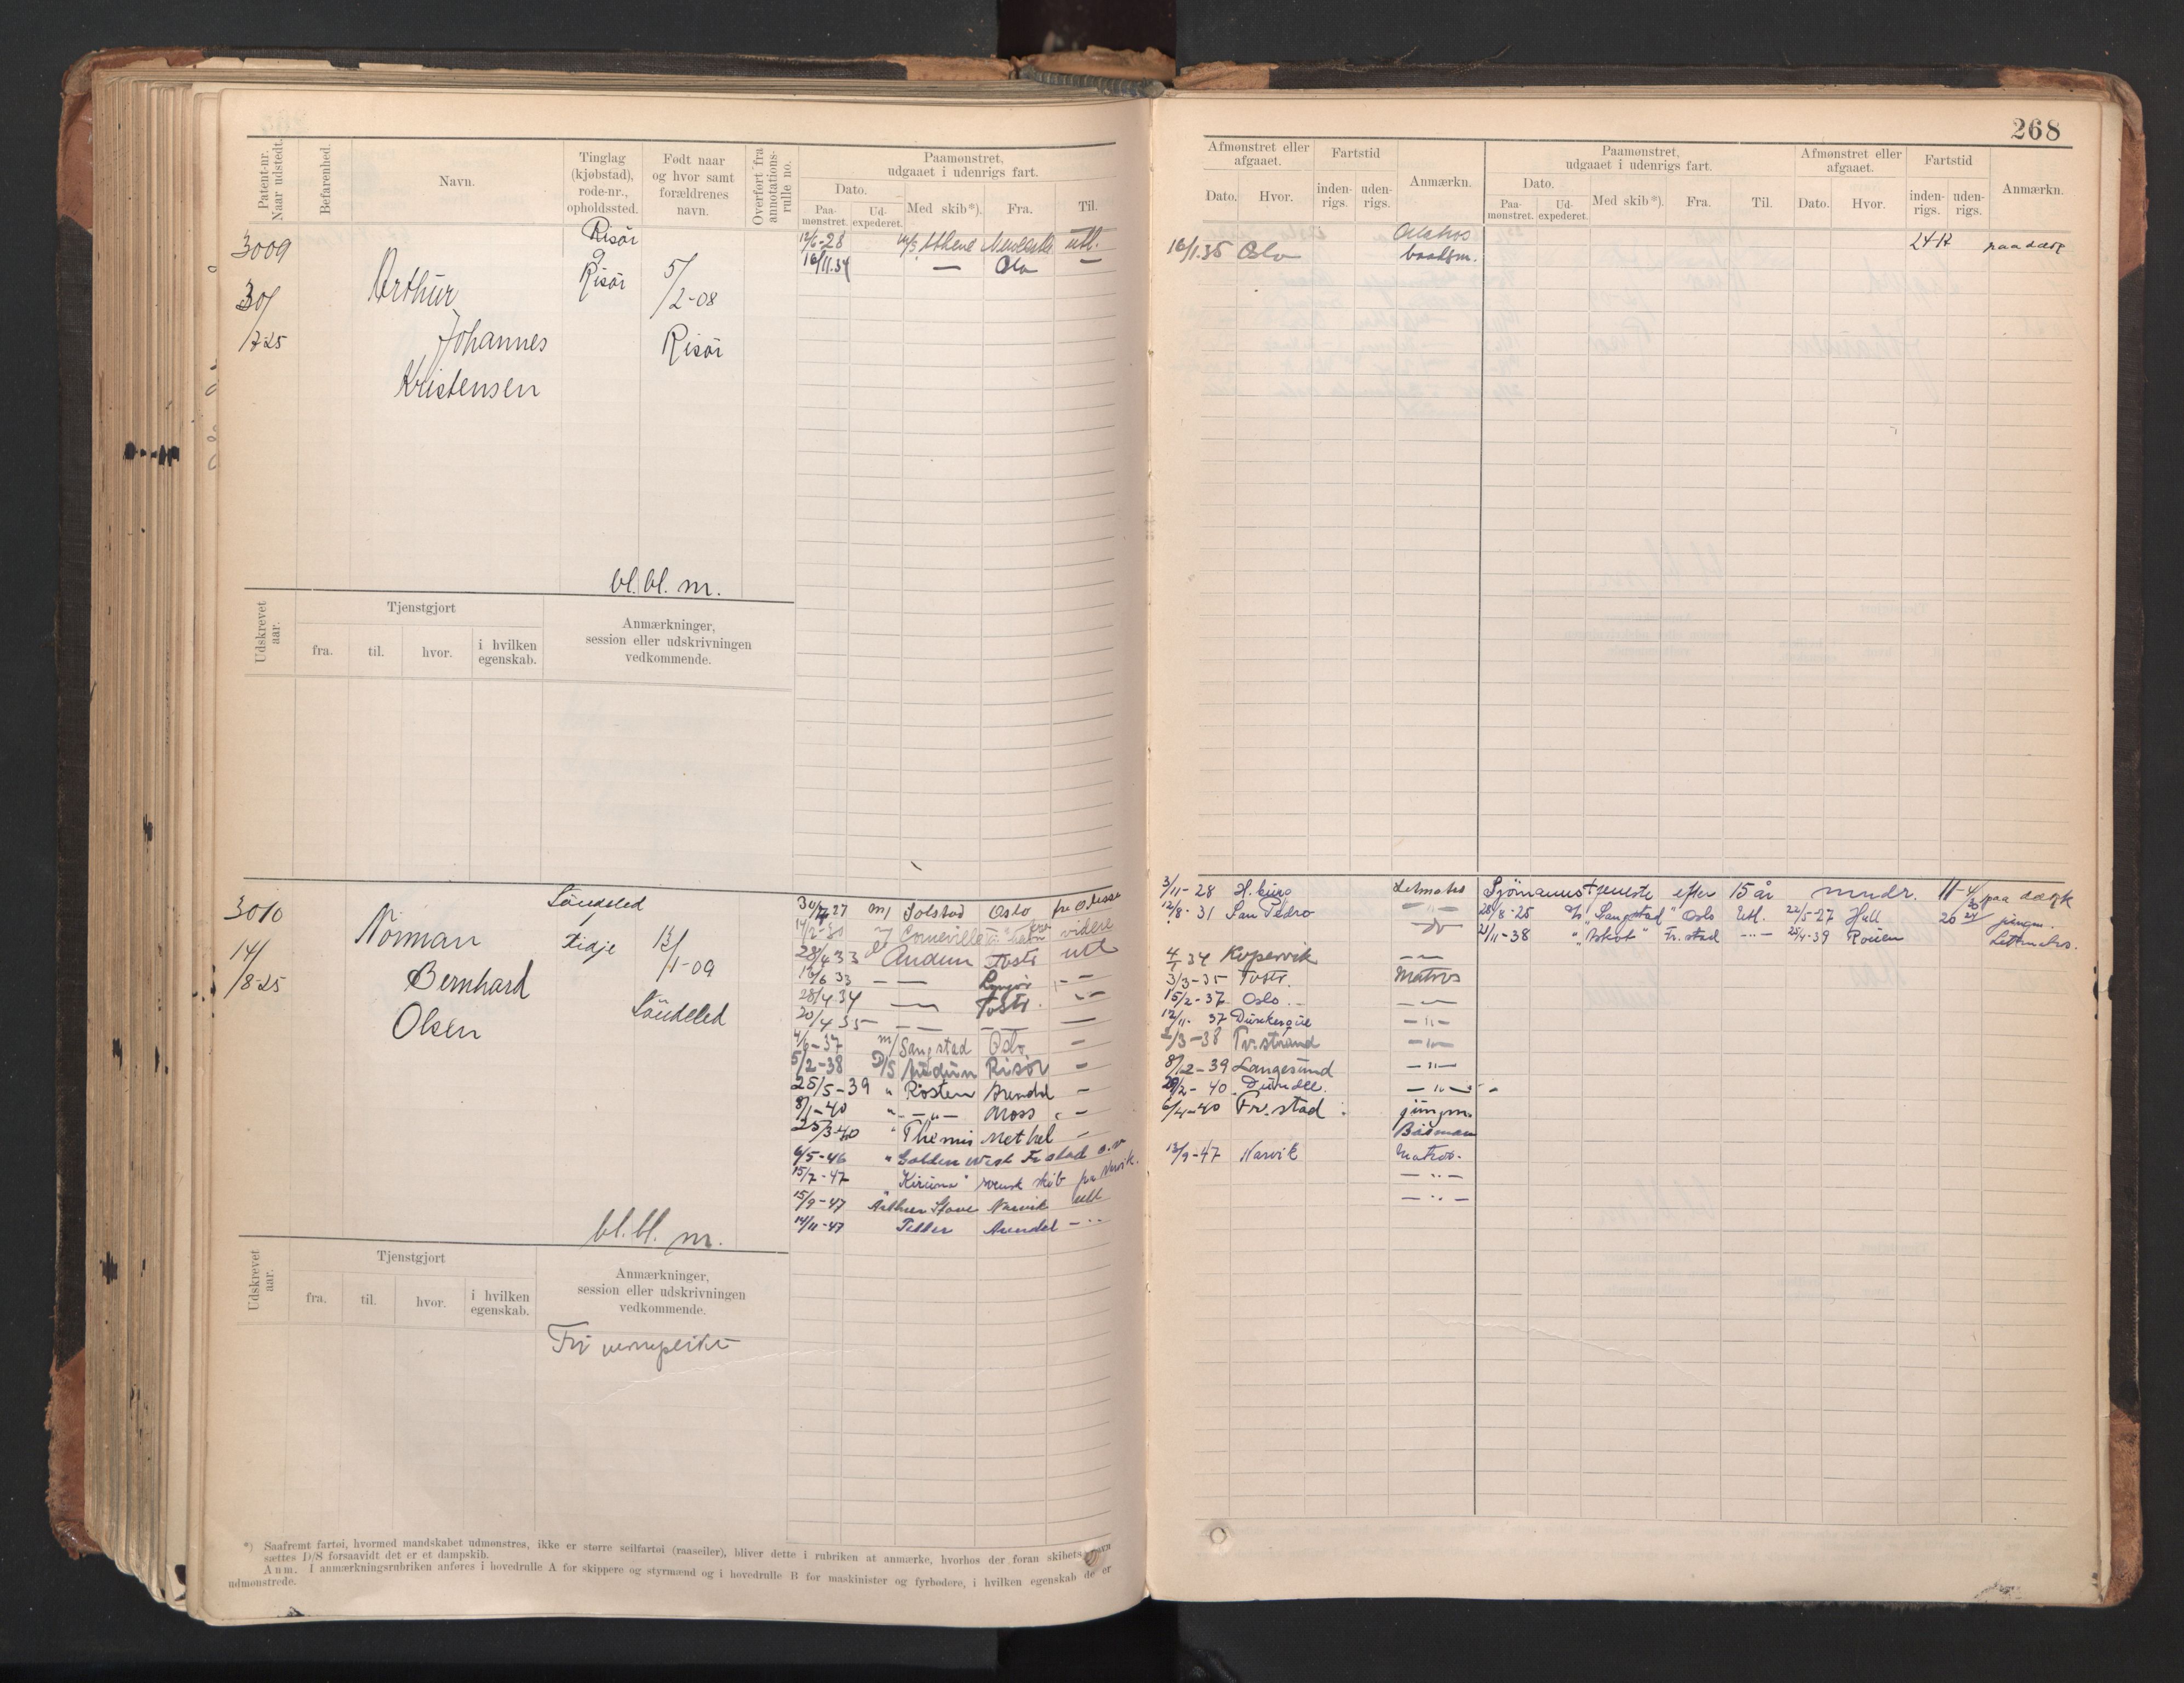 268
Patent-nr. Naar udstedt.
Befarenhed.
Navn.
Tinglag (kjøbstad), rode-nr., opholdssted.
Født naar og hvor samt forældrenes navn.
Overført fra annotations-rulle no.
Paamønstret, udgaaet i udenrigs fart.
Dato.
Paa-mønstret.
Ud-expederet.
Med skib*).
Fra.
Til.
Afmønstret eller afgaaet.
Dato.
Hvor.
Fartstid
inden-rigs.
uden-rigs.
Anmærkn.
Paamønstret, udgaaet i udenrigs fart.
Dato.
Paa-mønstret.
Ud-expederet.
Med skib*).
Fra.
Til.
Afmønstret eller afgaaet.
Dato.
Hvor.
Fartstid
inden-rigs.
uden-rigs.
Anmærkn.
3009
30/
/7-25
Arthur
Johannes
Kristensen
Risør
Risør
5/
/2-08
Risør
bl. bl. m.
12/6-28 m/s Athene utl.
16/11.34 — Oslo —
16/1.35 Oslo
Matros
baatsm.
24-17
paa dæk
Udskrevet aar.
Tjenstgjort
fra.
til.
hvor.
i hvilken egenskab.
Anmærkninger, session eller udskrivningen vedkommende.
3010
14/
/8-25
Norman
Bernhard
Olsen
Søndeled
13/
/1-09
Søndeled
bl. bl. m.
Solstad Oslo
videre
28/4 33 Audun Tostr. utl
16/6 33 — —
28/4 34 — Tostr.
20/4 35 — —
4/6-37 m/ Sangstad Oslo —
5/2-38 D/S Audun Risør —
25/5-39 " Rosten Arendal —
8/1-40 " — " — Moss —
25/3-40 " Themis Methel —
6/5-46 " Golden West Fr.stad
15/7-47 "Kiruna" svensk skib fra Narvik.
15/9-47 Narvik utl
14/11-47 Peller Arendal — " —
3/11-28 H.burg Letmatros
12/8-31 San Pedro — " —
4/1 34 Kopervik — —
3/3-35 Tostr. Matros
15/2-37 Oslo. — —
12/11-37 Dunkerque — " —
2/3-38 Tv.strand — " —
8/12-39 Langesund — " —
29/2-40 Dundee. — " —
6/4-40 Fr.stad jungm.
Båtsman
13/9-47 Narvik Matros.
— " —
— " —
Sjömannstjeneste efter 15 år mndr. 11-4/30 paa dæk
28/8-25 "Sangstad" Oslo Utl. 22/5-27 Hull 20 24 jungm.
21/11-38 "Askot" Fr.stad — " — 25/4-39 Rouen Lettmatros.
Udskrevet aar.
Tjenstgjort
fra.
til.
hvor.
i hvilken egenskab.
Anmærkninger, session eller udskrivningen vedkommende.
Fri verneplikt
*) Saafremt fartøi, hvormed mandskabet udmønstres, ikke er større seilfartøi (raaseiler), bliver dette i rubriken at anmerke, hvorhos der foran skibets navn
sættes D/S forsaavidt det er et dampskib.
Anm. I anmærkningsrubriken anføres i hovedrulle A for skippere og styrmænd og i hovedrulle B for maskinister og fyrbødere, i hvilken egenskab de er
udmønstrede.